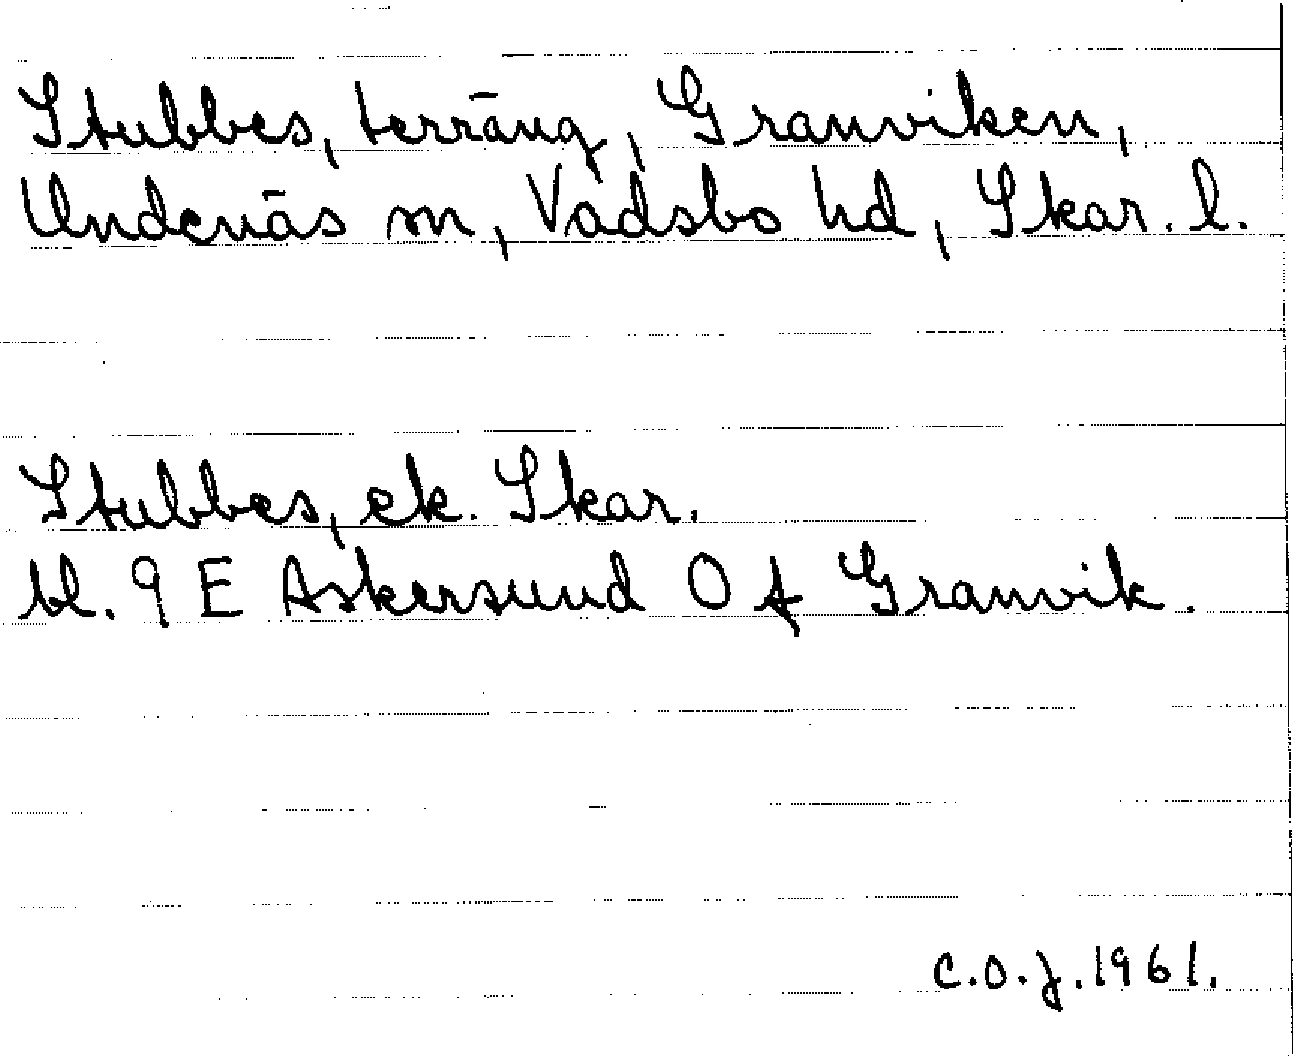 Stubbes, terräng, Granviken,
Undenäs sn, Vadsbo hd, Skar. l.
Stubbes, ek. Skar.
bl. 9 E Askersund O f Granvik.
C.O.J. 1961.